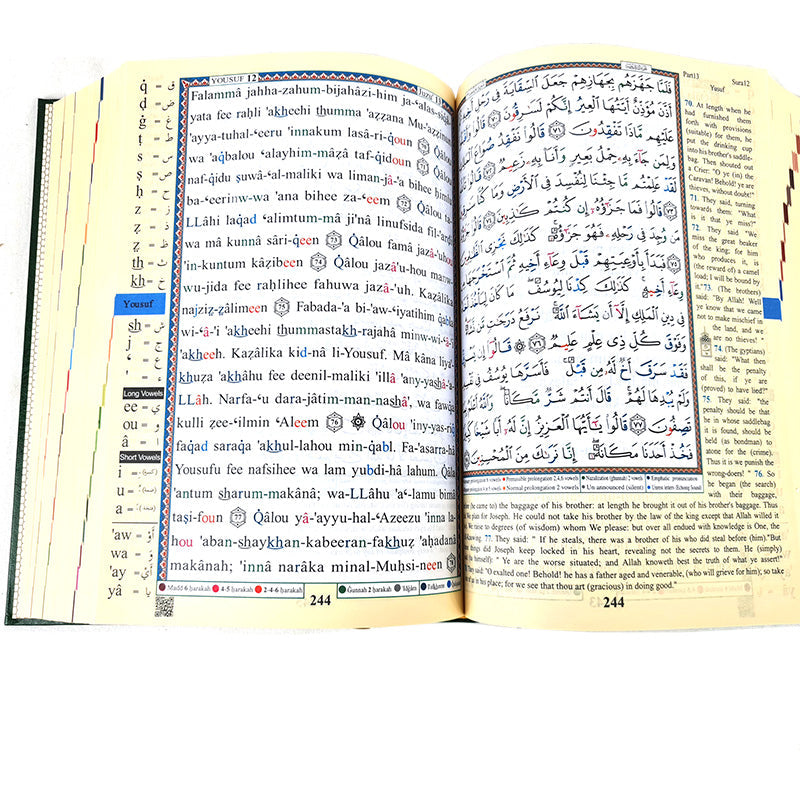 YOUSUF 12
Juzu' 13
Falammâ jahha-zahum-bijahâzi-him ja-'alas-siqâ-
yata fee raḥli 'akheehi thumma 'azzana Mu-'azzinun
'ayya-tuhal-‘eeru 'innakum lasâ-ri-qoun 70 Qâlou
wa 'aqbalou ‘alayhim-mâzâ taf-qidoun 71 Qâlou
naf-qidu ṣuwâ-‘al-maliki wa liman-jâ-'a bihee ḥimlu
ba-‘eerinw-wa 'ana bihee za-‘eem 72 Qâlou
LLâhi laqad ‘alimtum-mâ ji'nâ linufsida fil-'arḍi
wa mâ kunnâ sâri-qeen 73 Qâlou famâ jazâ-'uhou
'in-kuntum kâzibeen 74 Qâlou jazâ'u-hou manw-
wu-jida fee raḥlihee fahuwa jazâ-'uh. Kazâlika
najziẓ-ẓâlimeen 75 Fabada-'a bi-'aw-‘iyatihim qabla
wi-‘â-'i 'akheehi thummastakh-rajahâ minw-wi-‘â-'i
'akheeh. Kazâlika kid-nâ li-Yousuf. Mâ kâna liya'-
khuza 'akhâhu fee deenil-maliki 'illâ 'any-yashâ-'a-
LLâh. Narfa-‘u dara-jâtim-man-nashâ', wa fawqa
kulli zee-‘ilmin ‘Aleem 76 Qâlou 'iny-yas-riq
faqad saraqa 'akhul-lahou min-qabl. Fa-'asarra-hâ
Yousufu fee nafsihee wa lam yubdi-hâ lahum. Qâla
'antum sharum-makânâ; wa-LLâhu 'a‘-lamu bimâ
taṣi-foun 77 Qâlou yâ-'ayyu-hal-‘Azeezu 'inna la-
hou 'aban-shaykhan-kabeeran-fakhuẓ 'aḥadanâ
makânah; 'innâ narâka minal-Muḥsi-neen 78
q̇ = ق
ḍ = ض
ġ = غ
ṭ = ط
ṣ = ص
ḥ = ح
z = ذ
ẓ = ظ
th = ث
kh = خ
Yousuf
sh = ش
j = ج
' = ء
Long Vowels
ee = ي
ou = و
â = ا
Short Vowels
i =
u =
a =
'aw = أَوْ
wa = وَ
'ay = أَيْ
yâ = يا
Madd 6 ḥarakah 4-5 ḥarakah 2-4-6 ḥarakah Ġunnah 2 ḥarakah 'Idġâm Tafkheem
244
فَلَمَّا جَهَّزَهُم بِجَهَازِهِمْ جَعَلَ ٱلسِّقَايَةَ فِي رَحْلِ أَخِيهِ ثُمَّ
أَذَّنَ مُؤَذِّنٌ أَيَّتُهَا ٱلْعِيرُ إِنَّكُمْ لَسَٰرِقُونَ ٧٠ قَالُوا۟ وَأَقْبَلُوا۟
عَلَيْهِم مَّاذَا تَفْقِدُونَ ٧١ قَالُوا۟ نَفْقِدُ صُوَاعَ ٱلْمَلِكِ
وَلِمَن جَآءَ بِهِۦ حِمْلُ بَعِيرٍ وَأَنَا۠ بِهِۦ زَعِيمٌ ٧٢ قَالُوا۟ تَٱللَّهِ
لَقَدْ عَلِمْتُم مَّا جِئْنَا لِنُفْسِدَ فِي ٱلْأَرْضِ وَمَا كُنَّا سَٰرِقِينَ
٧٣ قَالُوا۟ فَمَا جَزَٰٓؤُهُۥٓ إِن كُنتُمْ كَٰذِبِينَ ٧٤ قَالُوا۟ جَزَٰٓؤُهُۥ
مَن وُجِدَ فِي رَحْلِهِۦ فَهُوَ جَزَٰٓؤُهُۥ كَذَٰلِكَ نَجْزِي ٱلظَّٰلِمِينَ
٧٥ فَبَدَأَ بِأَوْعِيَتِهِمْ قَبْلَ وِعَآءِ أَخِيهِ ثُمَّ ٱسْتَخْرَجَهَا مِن
وِعَآءِ أَخِيهِ كَذَٰلِكَ كِدْنَا لِيُوسُفَ مَا كَانَ لِيَأْخُذَ أَخَاهُ
فِي دِينِ ٱلْمَلِكِ إِلَّآ أَن يَشَآءَ ٱللَّهُ نَرْفَعُ دَرَجَٰتٍ مَّن نَّشَآءُ
وَفَوْقَ كُلِّ ذِي عِلْمٍ عَلِيمٌ ٧٦ قَالُوٓا۟ إِن يَسْرِقْ
فَقَدْ سَرَقَ أَخٌ لَّهُۥ مِن قَبْلُ فَأَسَرَّهَا يُوسُفُ فِي نَفْسِهِۦ
وَلَمْ يُبْدِهَا لَهُمْ قَالَ أَنتُمْ شَرٌّ مَّكَانًا وَٱللَّهُ أَعْلَمُ بِمَا
تَصِفُونَ ٧٧ قَالُوا۟ يَٰٓأَيُّهَا ٱلْعَزِيزُ إِنَّ لَهُۥٓ أَبًا شَيْخًا كَبِيرًا
فَخُذْ أَحَدَنَا مَكَانَهُۥٓ إِنَّا نَرَىٰكَ مِنَ ٱلْمُحْسِنِينَ ٧٨
Permissible prolongation 2,4,6 vowels Nazalization (ghunnah) 2 vowels Emphatic pronunciation
Normal prolongation 2 vowels Un announced (silent) Unrest letters (Echoing Sound)
Part13 Sura12
Yusuf
70. At length when he
had furnished them
forth with provisions
(suitable) for them, he
put the drinking cup
into his brother's saddle-
bag. Then shouted out
a Crier: "O ye (in) the
Caravan! Behold! ye are
thieves, without doubt!"
71. They said, turning
towards them: "What
is it that ye miss?"
72. They said "We
miss the great beaker
of the king; for him
who produces it, is
(the reward of) a camel
load; I will be bound by
it."73. (The brothers)
said: "By Allah! Well
ye know that we came
not to make mischief in
the land, and we
are no thieves! "
74. (The gyptians)
said: "What then
shall be the penalty
of this, if ye are
(proved) to have lied?"
75. They said: "the
penalty should be that
he in whose saddle-bag
it is found, should be
held (as bondman) to
atone for the (crime).
Thus it is we punish the
wrong-doers! " 76. So
he began (the search)
with their baggage,
(he came to) the baggage of his brother: at length he brought it out of his brother's baggage. Thus
We plan for Joseph. He could not take his brother by the law of the king except that Allah willed it
We raise to degrees (of wisdom) whom We please: but over all endued with knowledge is One, the
Knowing. 77. They said: " If he steals, there was a brother of his who did steal before (him)."But
things did Joseph keep locked in his heart, revealing not the secrets to them. He (simply)
himself): " Ye are the worse situated; and Allah knoweth best the truth of what ye assert!"
said: "O exalted one! Behold! he has a father aged and venerable, (who will grieve for him); so take
us in his place; for we see that thou art (gracious) in doing good."
244